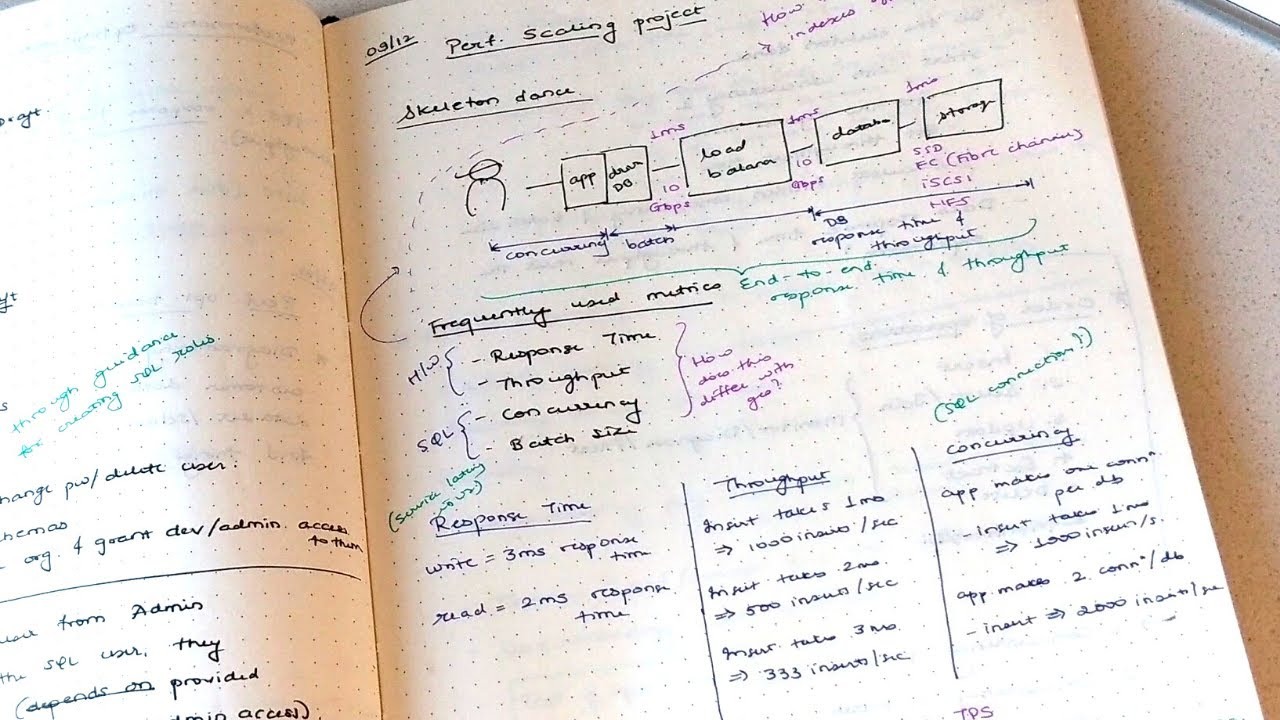 Draft
through guidance
for creating SQL roles
change pw/delete user:
schemas
org & grant dev/admin access
to them
user from Admin
the SQL user, they
(depends on provided
admin access)
09/12 Perf. Scaling project
How
indexes
Skeleton dance
app
DB
1ms
10
Gbps
load
balance
1ms
10
Gbps
databse
1ms
storage
SSD
FC (Fibre channel)
iSCSI
NFS
concurrency
batch
DB
response time &
throughput
End-to-end
response time & throughput
Frequently used metrics
H/W
- Response Time
- Throughput
SQL
- Concurrency
- Batch size
How
does this
differ with
geo?
(service latency
vs us)
Response Time
write = 3ms response
time
read = 2ms response
time
Throughput
Insert takes 1ms
⇒ 1000 inserts/sec
Insert takes 2ms
⇒ 500 inserts/sec
Insert takes 3ms
⇒ 333 inserts/sec
(SQL connection?)
Concurrency
app makes one connⁿ
per db
- insert takes 1ms
⇒ 1000 inserts/s.
app makes 2 connⁿ/db
- insert ⇒ 2000 inserts/sec
TPS